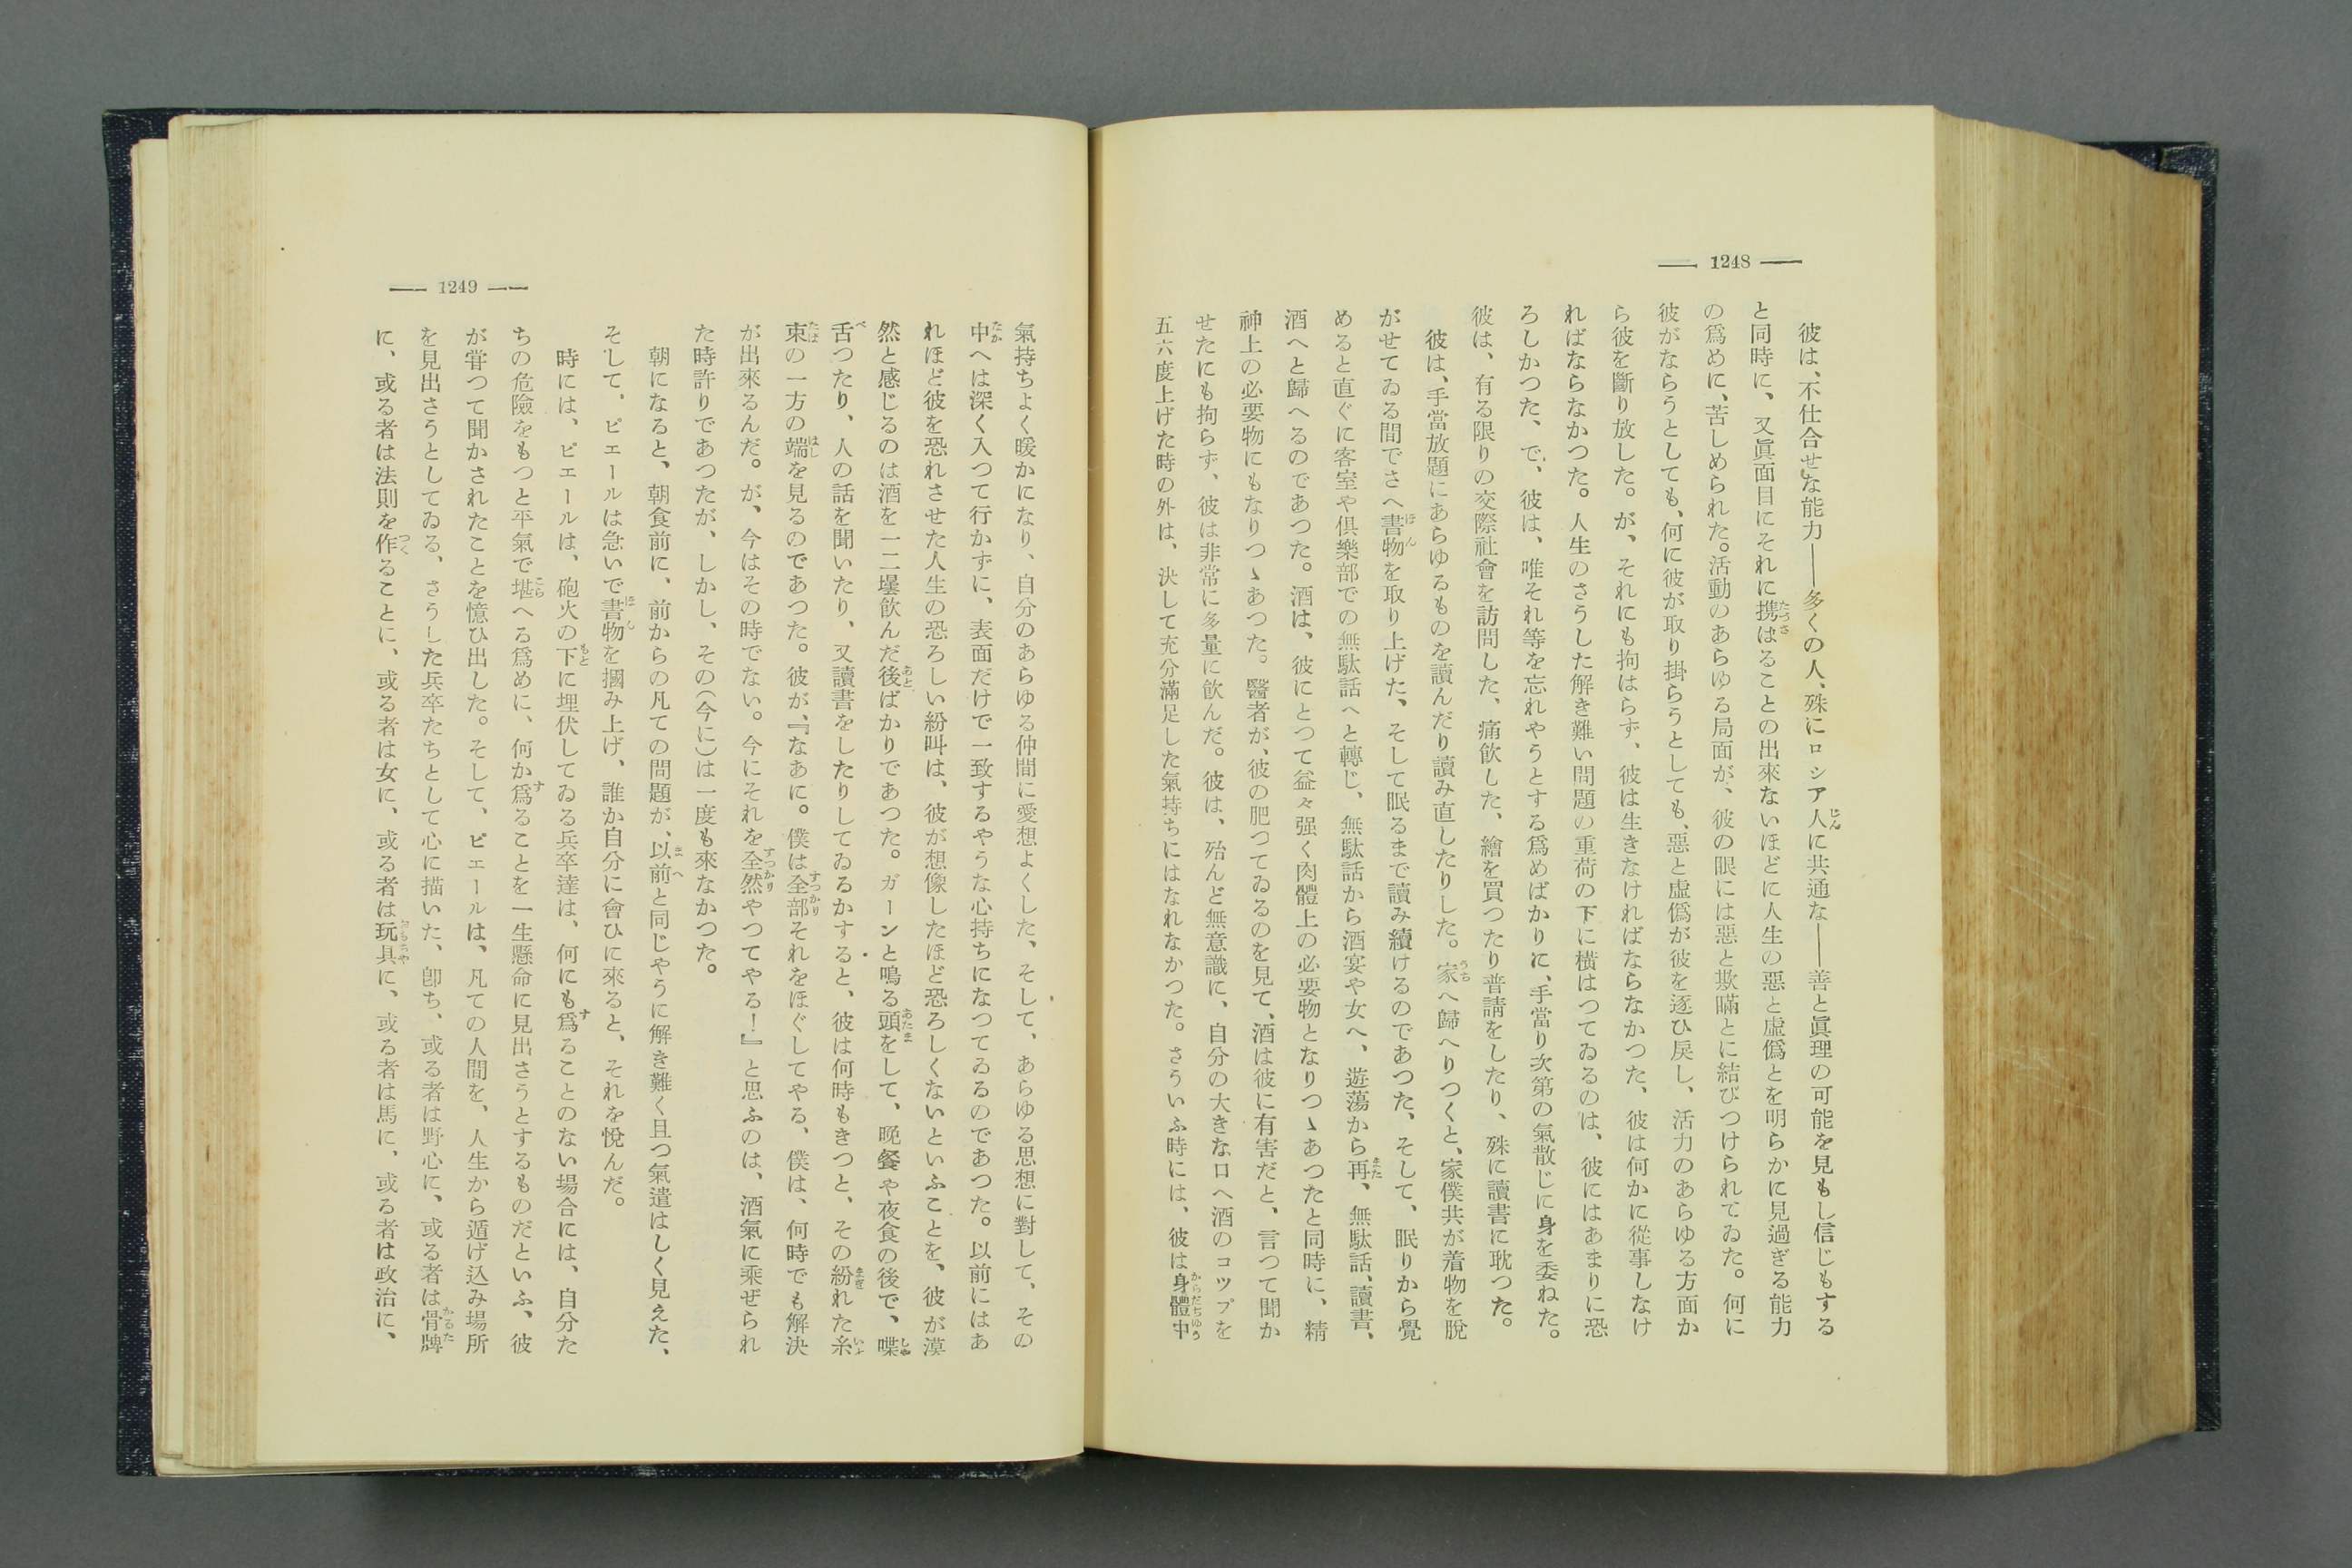 — 1248 —
彼は、不仕合せな能力——多くの人、殊にロシア人に共通な——善と眞理の可能を見もし信じもする
と同時に、又眞面目にそれに携はることの出來ないほどに人生の惡と虛僞とを明らかに見過ぎる能力
の爲めに、苦しめられた。活動のあらゆる局面が、彼の眼には惡と欺瞞とに結びつけられてゐた。何に
彼がならうとしても、何に彼が取り掛らうとしても、惡と虛僞が彼を逐ひ戾し、活力のあらゆる方面か
ら彼を斷り放した。が、それにも拘はらず、彼は生きなければならなかつた、彼は何かに從事しなけ
ればならなかつた。人生のさうした解き難い問題の重荷の下に橫はつてゐるのは、彼にはあまりに恐
ろしかつた、で、彼は、唯それ等を忘れやうとする爲めばかりに、手當り次第の氣散じに身を委ねた。
彼は、有る限りの交際社會を訪問した、痛飮した、繪を買つたり普請をしたり、殊に讀書に耽つた。
彼は、手當放題にあらゆるものを讀んだり讀み直したりした。家へ歸へりつくと、家僕共が着物を脫
がせてゐる間でさへ書物を取り上げた、そして眠るまで讀み續けるのであつた、そして、眠りから覺
めると直ぐに客室や俱樂部での無駄話へと轉じ、無駄話から酒宴や女へ、遊蕩から再、無駄話、讀書、
酒へと歸へるのであつた。酒は、彼にとつて益々强く肉體上の必要物となりつゝあつたと同時に、精
神上の必要物にもなりつゝあつた。醫者が、彼の肥つてゐるのを見て、酒は彼に有害だと、言つて聞か
せたにも拘らず、彼は非常に多量に飮んだ。彼は、殆んど無意識に、自分の大きな口へ酒のコツプを
五六度上げた時の外は、決して充分滿足した氣持ちにはなれなかつた。さういふ時には、彼は身體中
— 1249 —
氣持ちよく暖かになり、自分のあらゆる仲間に愛想よくした、そして、あらゆる思想に對して、その
中へは深く入つて行かずに、表面だけで一致するやうな心持ちになつてゐるのであつた。以前にはあ
れほど彼を恐れさせた人生の恐ろしい紛叫は、彼が想像したほど恐ろしくないといふことを、彼が漠
然と感じるのは酒を一二壜飮んだ後ばかりであつた。ガーンと鳴る頭をして、晩餐や夜食の後で、喋
舌つたり、人の話を聞いたり、又讀書をしたりしてゐるかすると、彼は何時もきつと、その紛れた糸
束の一方の端を見るのであつた。彼が、『なあに。僕は全部それをほぐしてやる、僕は、何時でも解決
が出來るんだ。が、今はその時でない。今にそれを全然やつてやる！』と思ふのは、酒氣に乘ぜられ
た時許りであつたが、しかし、その（今に）は一度も來なかつた。
朝になると、朝食前に、前からの凡ての問題が、以前と同じやうに解き難く且つ氣遣はしく見えた、
そして、ピエールは急いで書物を摑み上げ、誰か自分に會ひに來ると、それを悅んだ。
時には、ピエールは、砲火の下に埋伏してゐる兵卒達は、何にも爲ることのない場合には、自分た
ちの危險をもつと平氣で堪へる爲めに、何か爲ることを一生懸命に見出さうとするものだといふ、彼
が甞つて聞かされたことを憶ひ出した。そして、ピエールは、凡ての人間を、人生から遁げ込み場所
を見出さうとしてゐる、さうした兵卒たちとして心に描いた、卽ち、或る者は野心に、或る者は骨牌
に、或る者は法則を作ることに、或る者は女に、或る者は玩具に、或る者は馬に、或る者は政治に、